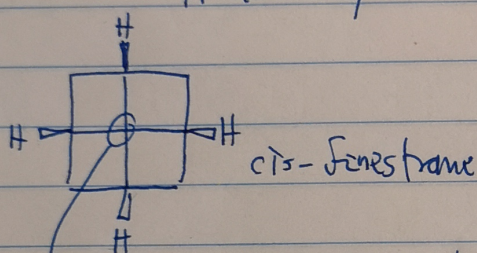 H
H H
cis-finestrane
H